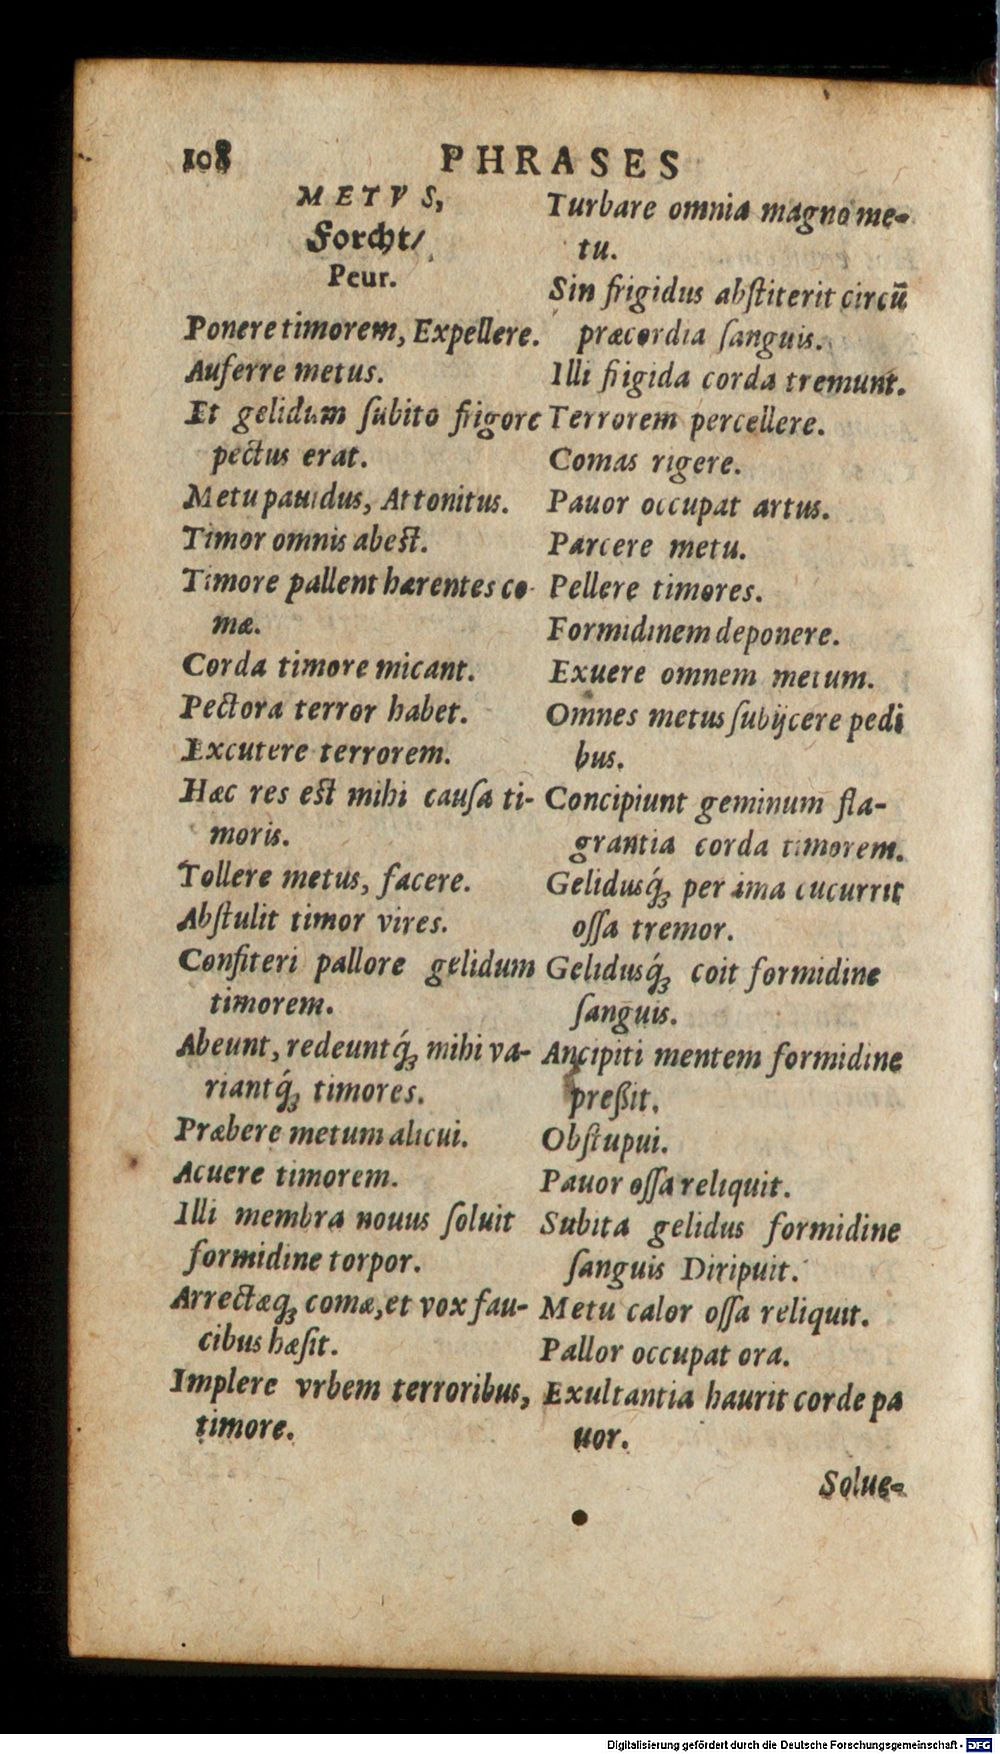 108 PHRASES
METVS,
Forcht/
Peur.
Ponere timorem, Expellere.
Auferre metus.
Et gelidum ſubito frigore
pectus erat.
Metu pauidus, Attonitus.
Timor omnis abest.
Timore pallent hærentes co-
mæ.
Corda timore micant.
Pectora terror habet.
Excutere terrorem.
Hæc res est mihi cauſa ti-
moris.
Tollere metus, facere.
Abſtulit timor vires.
Confiteri pallore gelidum
timorem.
Abeunt, redeuntq́ꝫ mihi va-
riantq́ꝫ timores.
Præbere metum alicui.
Acuere timorem.
Illi membra nouus ſoluit
formidine torpor.
Arrectæqꝫ comæ, et vox fau-
cibus hæſit.
Implere vrbem terroribus,
timore.
Turbare omnia magno me-
tu.
Sin frigidus abſtiterit circũ
præcordia ſanguis.
Illi frigida corda tremunt.
Terrorem percellere.
Comas rigere.
Pauor occupat artus.
Parcere metu.
Pellere timores.
Formidinem deponere.
Exuere omnem metum.
Omnes metus ſubijcere pedi
bus.
Concipiunt geminum fla-
grantia corda timorem.
Gelidusq́ꝫ per ima cucurrit
oſſa tremor.
Gelidusq́ꝫ coit formidine
ſanguis.
Ancipiti mentem formidine
preßit.
Obſtupui.
Pauor oſſa reliquit.
Subita gelidus formidine
ſanguis Diripuit.
Metu calor oſſa reliquit.
Pallor occupat ora.
Exultantia haurit corde pa
uor.
Solue-
Digitalisierung gefördert durch die Deutsche Forschungsgemeinschaft - DFG